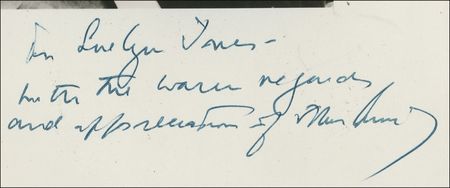 To Evelyn Jones -
with the warm regards
and appreciation of